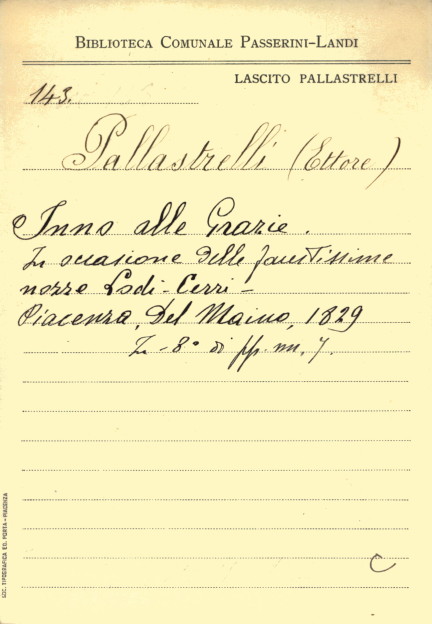 BIBLIOTECA COMUNALE PASSERINI-LANDI
LASCITO PALLASTRELLI
143.
Pallastrelli (Ettore)
Inno alle Grazie.
In occasione delle faustissime
nozze Lodi-Cerri-
Piacenza, Del Maino, 1829
In-8° di pp. nn. 7.
SOC. TIPOGRAFICA ED. PORTA-PIACENZA
C